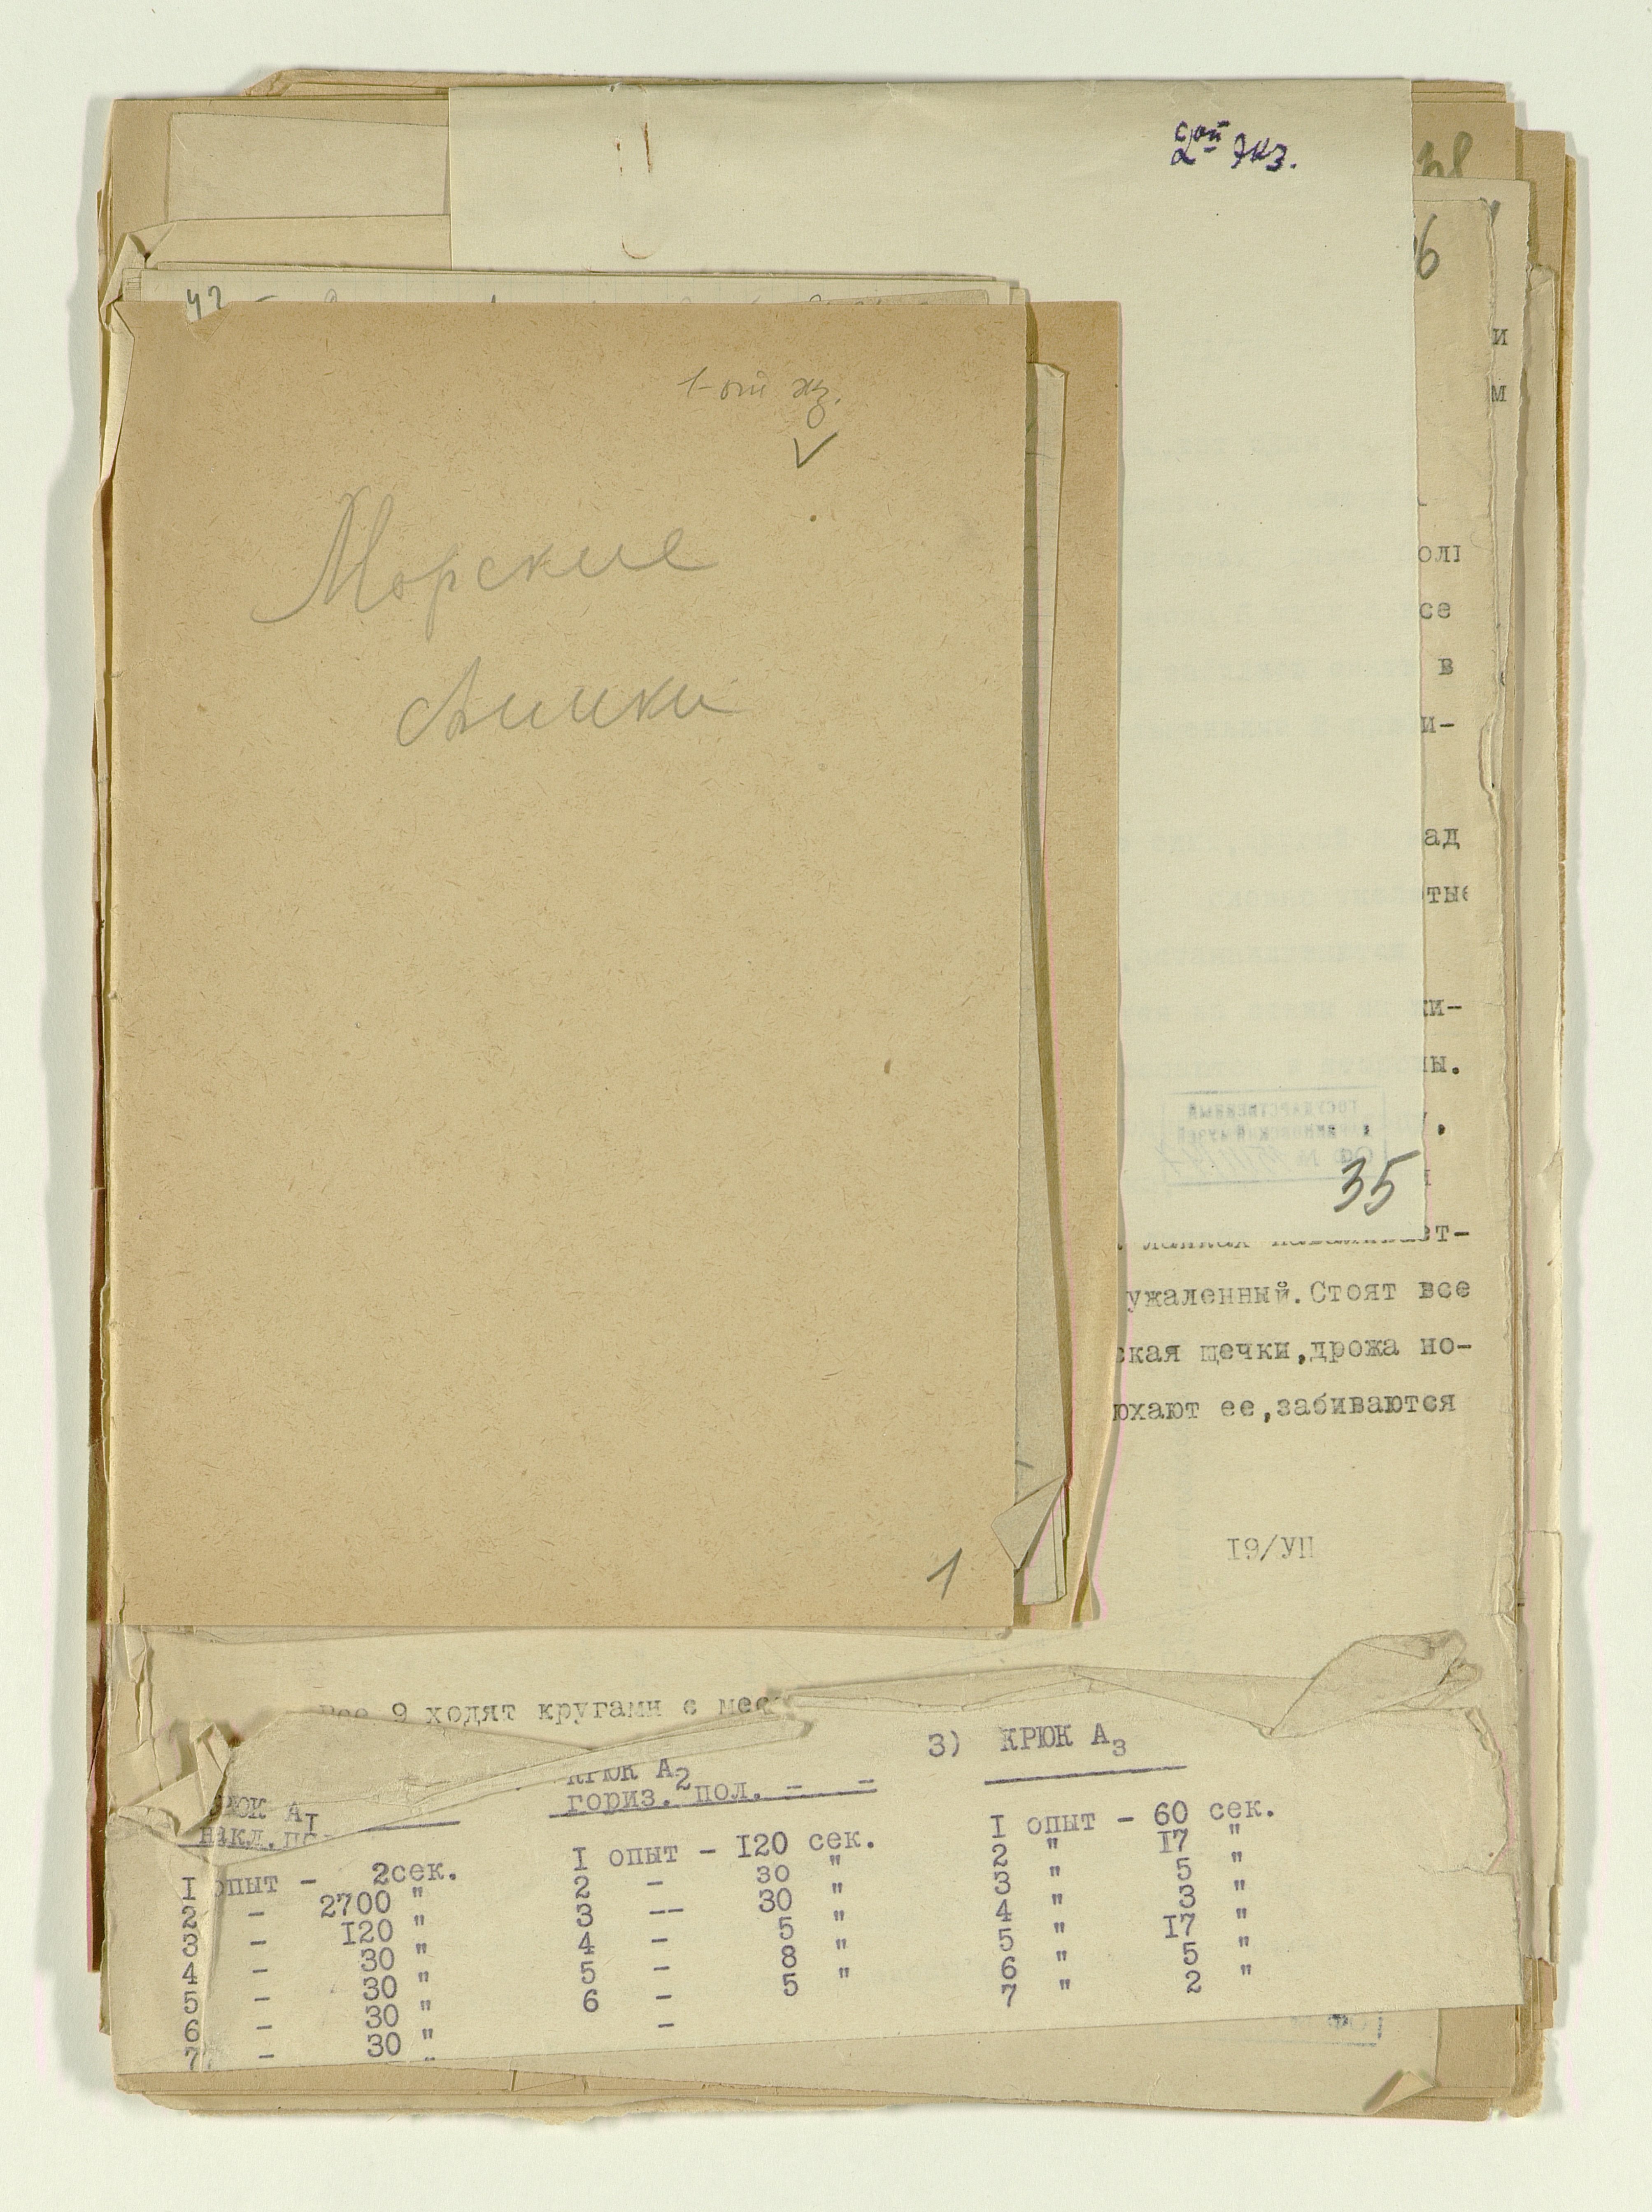 2ой экз.
38
6
42
1-ый экз.
Морские
свинки
1
и
м
се
в
и-
ад
тые
ки-
ны.
ГОСУДАРСТВЕННЫЙ
ДАРВИНОВСКИЙ МУЗЕЙ
ОФ №
35
ет-
ужаленный.Стоят все
ская щечки,дрожа но-
юхают ее,забиваются
I9/УП
все 9 ходят кругами с мес
КРЮК А I
накл.по
I опыт - 2сек.
2 - 2700 "
3 - I20 "
4 - 30 "
5 - 30 "
6 - 30 "
7 - 30 "
КРЮК А 2
гориз. пол. - -
I опыт - I20 сек.
2 - 30 "
3 -- 30 "
4 - 5 "
5 - 8 "
6 - 5 "
-
3) КРЮК А 3
I опыт - 60 сек.
2 " I7 "
3 " 5 "
4 " 3 "
5 " I7 "
6 " 5 "
7 " 2 "